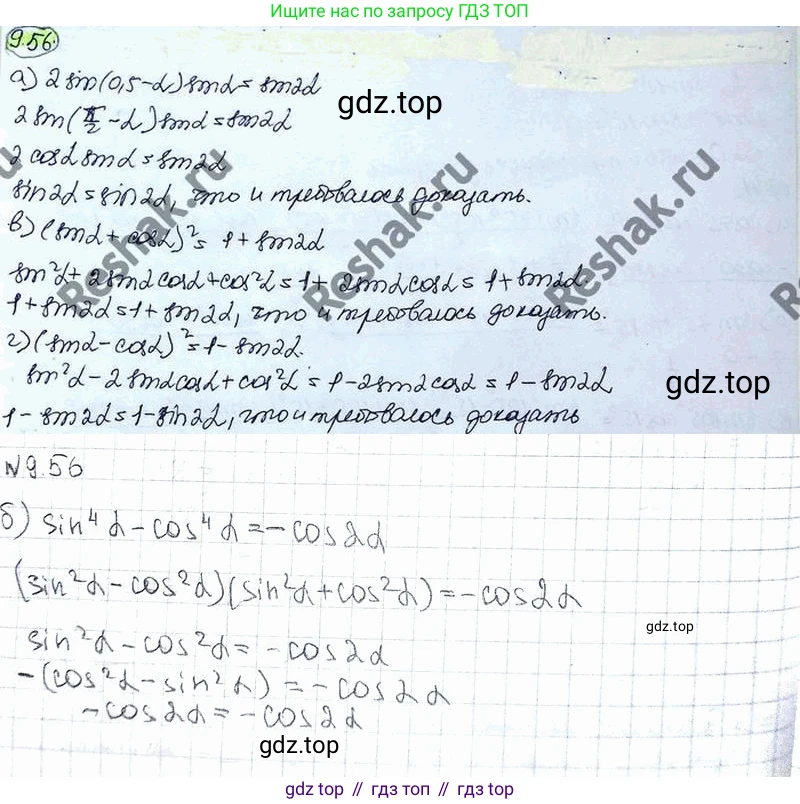 Ищите нас по запросу ГДЗ ТОП
9.56.
а) 2 sin(0,5-α) sinα = sin2α
gdz.top
2 sin(π/2 - α) sinα = sin2α
2 cosα sinα = sin2α
sin2α = sin2α, что и требовалось доказать.
в) (sinα + cosα)² = 1 + sin2α
sin²α + 2sinα cosα + cos²α = 1 + 2sinα cosα = 1 + sin2α.
1 + sin2α = 1 + sin2α, что и требовалось доказать.
г) (sinα - cosα)² = 1 - sin2α.
sin²α - 2 sinα cosα + cos²α = 1 - 2sinα cosα = 1 - sin2α
gdz.top
1 - sin2α = 1 - sin2α, что и требовалось доказать
Reshak.ru
Reshak.ru
Reshak.ru
№9.56
б) sin⁴α - cos⁴α = -cos2α
(sin²α - cos²α)(sin²α + cos²α) = -cos2α
gdz.top
sin²α - cos²α = -cos2α
-(cos²α - sin²α) = -cos2α
-cos2α = -cos2α
gdz.top
gdz.top // гдз топ // гдз.топ